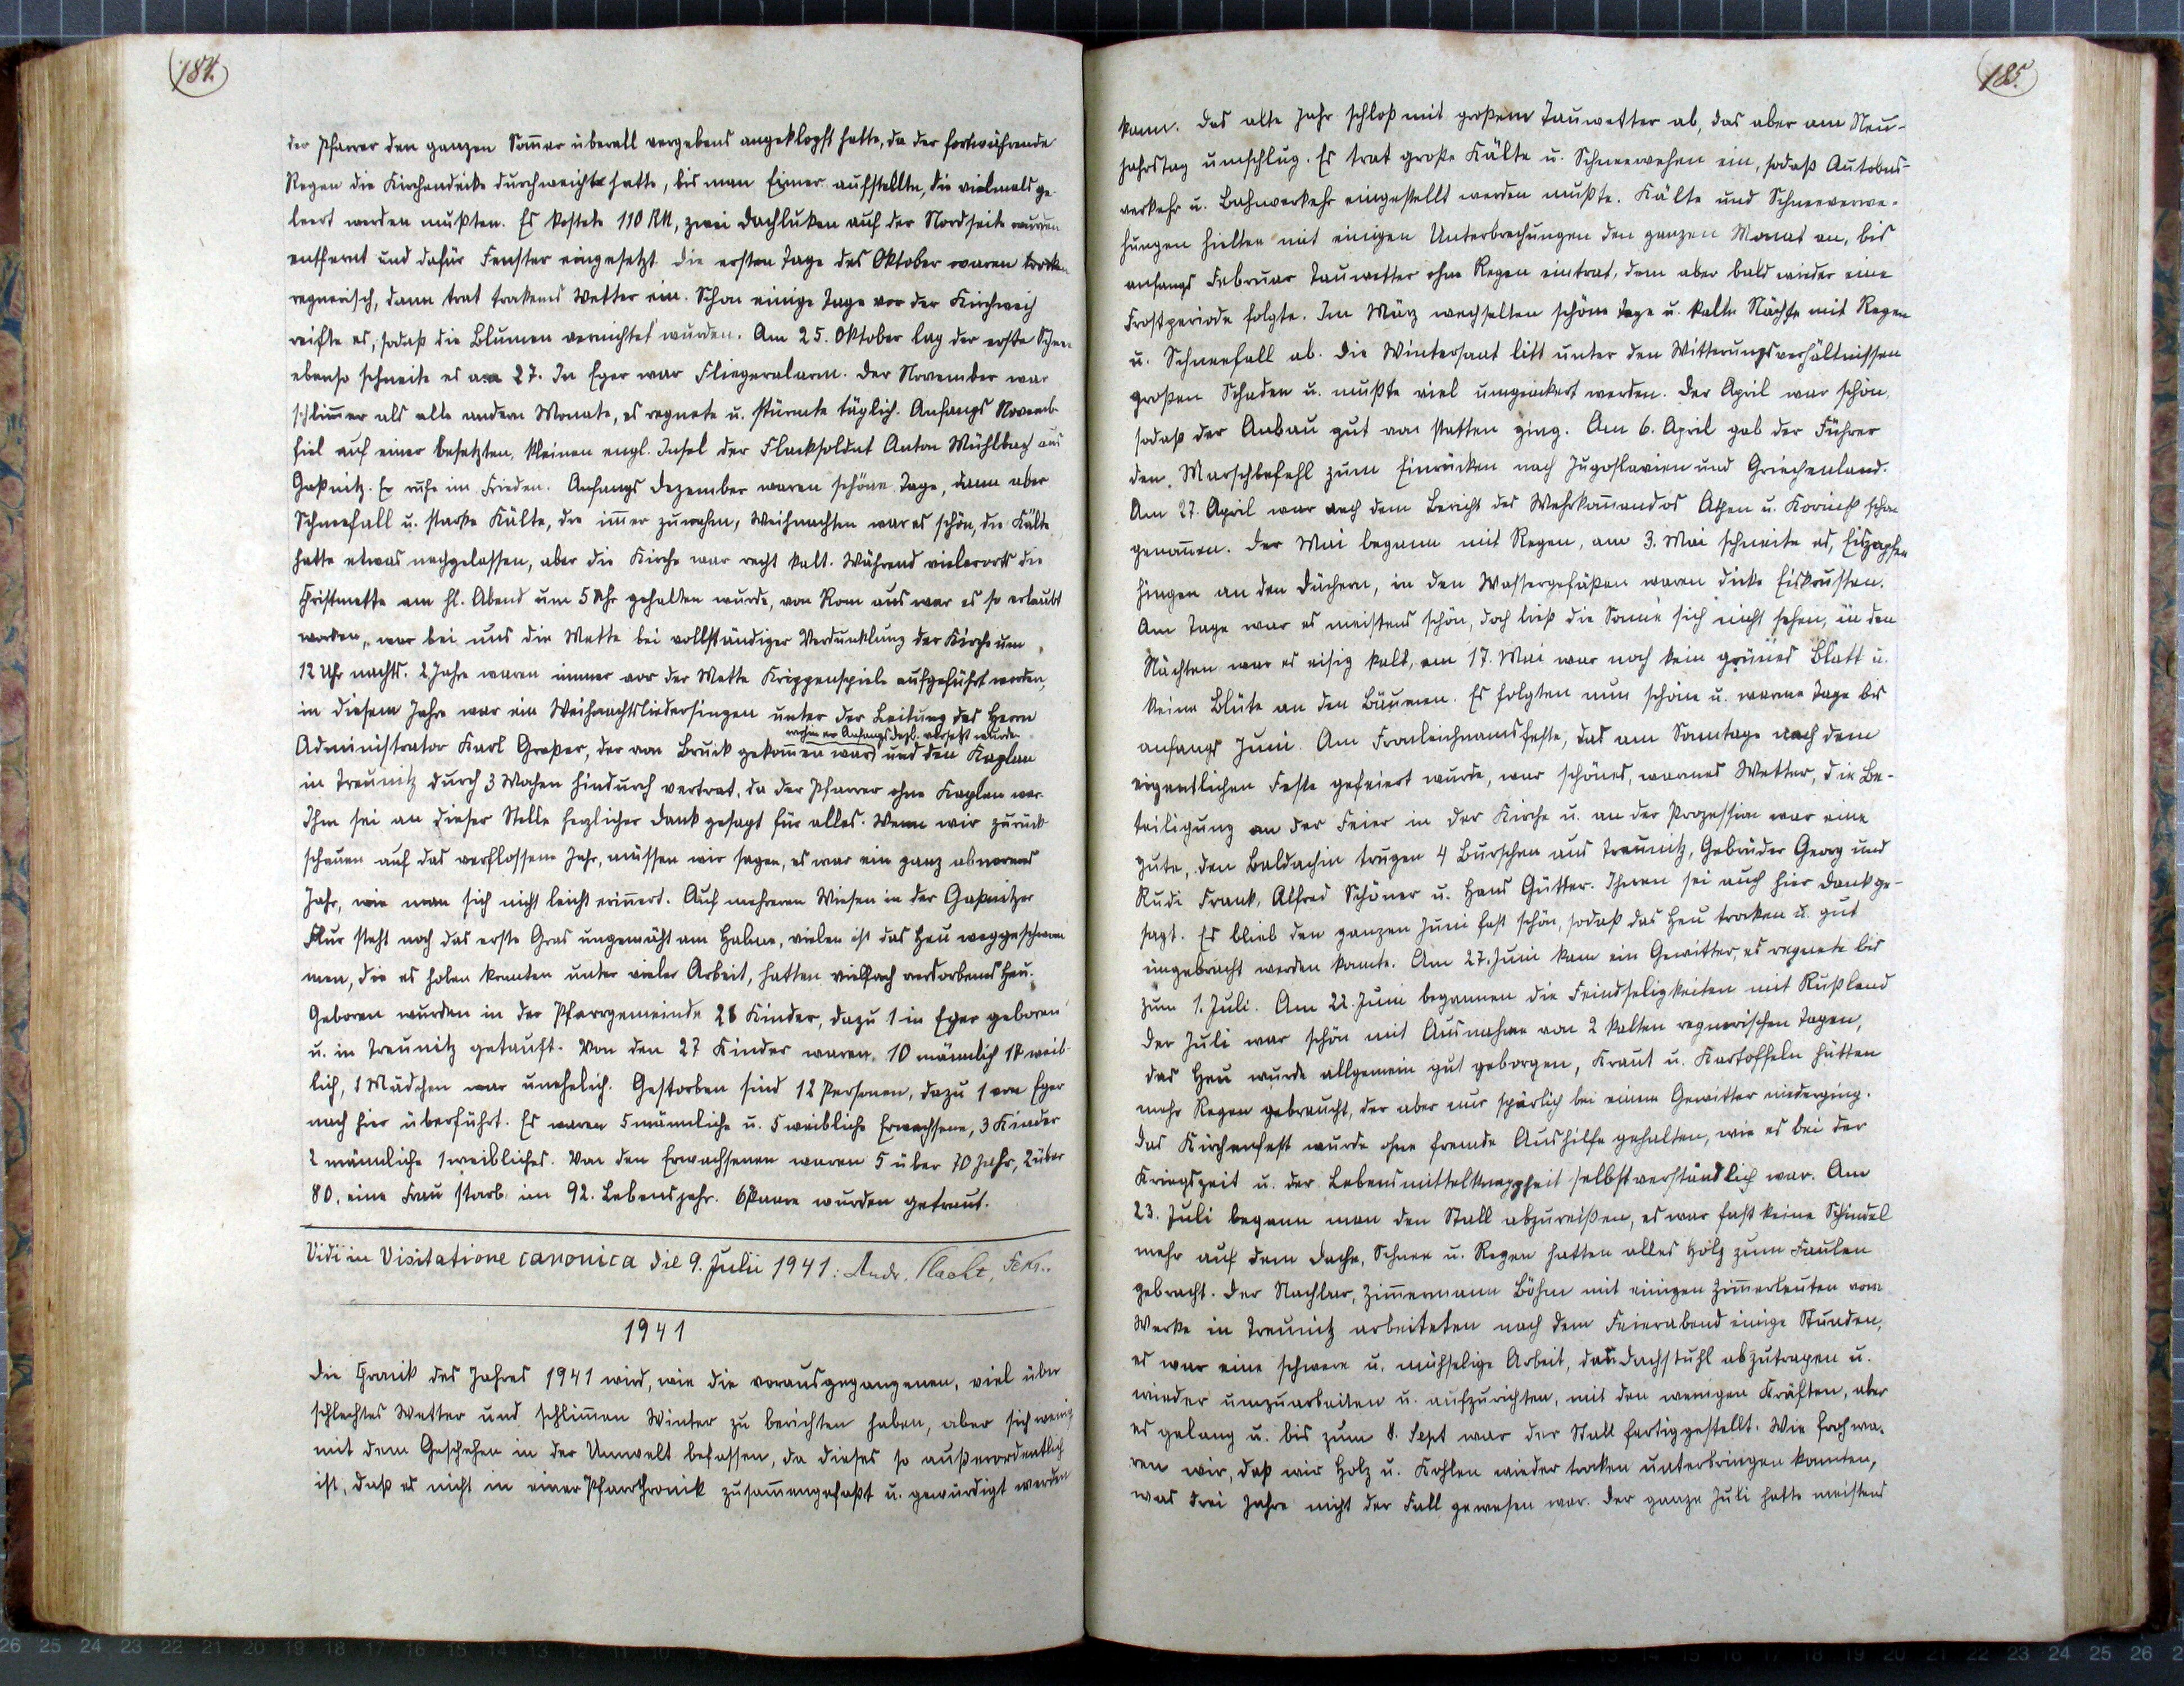 184.
der Pfarrer den ganzen Som̄er überall vergebens angeklopft hatte, da der fortwährende
Regen die Kirchendecke durchweicht hatte, bis man Eimer aufstellte, die vielmals ge-
leert werden mußten. Es kostete 110 RM, zwei Dachluken auf der Nordseite wurden
entfernt und dafür Fenster eingesetzt. Die ersten Tage des Oktober waren
regnerisch, dann trat trockenes Wetter ein. Schon einige Tage vor der Kirchweih
reifte es, sodaß die Blumen vernichtet wurden. Am 25. Oktober lag der erste Schnee
ebenso schneite es am 27. In Eger war Fliegeralarm. Der November war
schlim̄er als alle andern Monate, es regnete u. stürmte täglich. Anfangs Novemb.
fiel auf einer besetzten, kleinen engl. Insel der Flacksoldat Anton Mühlbach aus
Gaßnitz. Er ruhe im Frieden. Anfangs Dezember waren schöne Tage, dann aber
Schneefall u. starke Kälte, die im̄er zunahm, Weihnachten war es schön, die Kälte
hatte etwas nachgelassen, aber die Kirche war recht kalt. Während vielerorts die
Christmette am hl. Abend um 5 Uhr gehalten wurde, von Rom aus war es so erlaubt
worden, war bei uns die Mette bei vollständiger Verdunklung der Kirche um
12 Uhr nachts. 2 Jahre waren immer vor der Mette Krippenspiele aufgeführt worden,
in diesem Jahre war ein Weihnachtsliedersingen unter der Leitung des Herrn
wohin er Anfangs Dezb. versetzt wurde
Administrator Karl Großer, der von Bruck gekom̄en war und den Kaplan
in Treunitz durch 3 Wochen hindurch vertrat, da der Pfarrer ohne Kaplan war.
Ihm sei an dieser Stelle herzlicher Dank gesagt für alles. Wenn wir zurück-
schauen auf das verflossene Jahr, müssen wir sagen, es war ein ganz abnormes
Jahr, wie man sich nicht leicht erin̄ert. Auf mehreren Wiesen in der Gaßnitzer
Flur steht noch das erste Gras ungemäht am Halme, vielen ist das Heu weggeschwom
men, die es holen konnten unter vieler Arbeit, hatten vielfach verdorbenes Heu.
Geboren wurden in der Pfarrgemeinde 28 Kinder, dazu 1 in Eger geboren
u. in Treunitz getauft. Von den 27 Kinder waren 10 männlich 17 weib-
lich, 1 Mädchen war unehelich. Gestorben sind 12 Personen, dazu 1 von Eger
nach hier überführt. Es waren 5 männliche u. 5 weibliche Erwachsene, 3 Kinder
2 männliche 1 weibliches. Von den Erwachsenen waren 5 über 70 Jahr, 2 über
80, eine Frau starb im 92. Lebensjahr. 6 Paare wurden getraut.
Vidi in Visitatione canonica die 9. Julii 1941: Andr.
1941
Die Chronik des Jahres 1941 wird, wie die vorausgegangenen, viel über
schlechtes Wetter und schlim̄en Winter zu berichten haben, aber sich wenig
mit dem Geschehen in der Umwelt befassen, da dieses so außerordentlich
ist, daß es nicht in einer Pfarrchronik zusam̄engefaßt u. gewürdigt werden
185.
kann. Das alte Jahr schloß mit großem Tauwetter ab, das aber am Neu-
jahrstag umschlug. Es trat große Kälte u. Schneewehen ein, sodaß Autobus-
verkehr u. Bahnverkehr eingestellt werden mußte. Kälte und Schneeverwe-
hungen hielten mit einigen Unterbrechungen den ganzen Monat an, bis
anfangs Februar Tauwetter ohne Regen eintrat, dem aber bald wieder eine
Frostperiode folgte. Im März wechselten schöne Tage u. kalte Nächte mit Regen
u. Schneefall ab. Die Wintersaat litt unter den Witterungsverhältnissen
großen Schaden u. mußte viel umgeackert werden. Der April war schön,
sodaß der Anbau gut von statten ging. Am 6. April gab der Führer
den Marschbefehl zum Einrücken nach Jugoslavien und Griechenland.
Am 27. April war nach dem Bericht des Wehrkom̄andos Athen u. Korinth schon
genom̄en. Der Mai begann mit Regen, am 3. Mai schneite es, Eiszapfen
hingen an den Dächern, in den Wassergefäßen waren dicke Eiskrusten.
Am Tage war es meistens schön, doch ließ die Sonne sich nicht sehen, in den
Nächten war es eisig kalt, am 17. Mai war noch kein grünes Blatt u.
keine Blüte an den Bäumen. Es folgten nun schöne u. warme Tage bis
anfangs Juni. Am Fronleichnamsfeste, das am Sonntage nach dem
eigentlichen Feste gefeiert wurde, war schönes, warmes Wetter, die Be-
teiligung an der Feier in der Kirche u. an der Prozession war eine
gute, den Baldachin trugen 4 Burschen aus Treunitz, Gebrüder Georg und
Rudi Frank, Alfred Schöner u. Hans Gütter. Ihnen sei auch hier Dank ge-
sagt. Es blieb den ganzen Juni fast schön, sodaß das Heu trocken u. gut
eingebracht werden konnte. Am 27. Juni kam ein Gewitter, es regnete bis
zum 1. Juli. Am 22. Juni begannen die Feindseligkeiten mit Rußland
Der Juli war schön mit Ausnahme von 2 kalten regnerischen Tagen,
das Heu wurde allgemein gut geborgen, Kraut u. Kartoffeln hätten
mehr Regen gebraucht, der aber nur spärlich bei einem Gewitter niederging.
Das Kirchenfest wurde ohne fremde Aushilfe gehalten, wie es bei der
Kriegszeit u. der Lebensmittelknappheit selbstverständlich war. Am
23. Juli begann man den Stall abzureißen, es war fast keine Schindel
mehr auf dem Dache, Schnee u. Regen hatten alles Holz zum Faulen
gebracht. Der Nachbar, Zim̄ermann Böhm mit einigen Zim̄erleuten vom
Werke in Treunitz arbeiteten nach dem Feierabend einige Stunden,
es war eine schwere u. mühselige Arbeit, den Dachstuhl abzutragen u.
wieder umzuarbeiten u. aufzurichten, mit den wenigen Kräften, aber
es gelang u. bis zum 8. Sept war der Stall fertiggestellt. Wie froh wa-
ren wir, daß wir Holz u. Kohlen wieder trocken unterbringen konnten,
was drei Jahre nicht der Fall gewesen war. Der ganze Juli hatte meistens